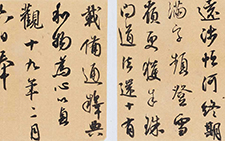 遠涉恒河終期
滿字頻登雪
嶺更獲半珠
問道往還十有
載備通釋典
利物為心以貞
觀十九年二月
六日奉